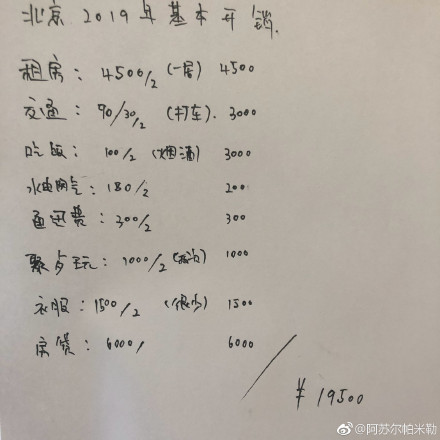 北京 2019年基本开销.
租房: 4500/2 (一居) 4500
交通: 90/30/2 (打车). 3000
吃饭: 100/2 (烟酒) 3000
水电网气: 180/2 200
通迅费: 300/2 300
聚与玩: 1000/2 1000
衣服: 1500/2 (很少) 1500
房贷: 6000/ 6000
¥ 19500
@阿苏尔帕米勒